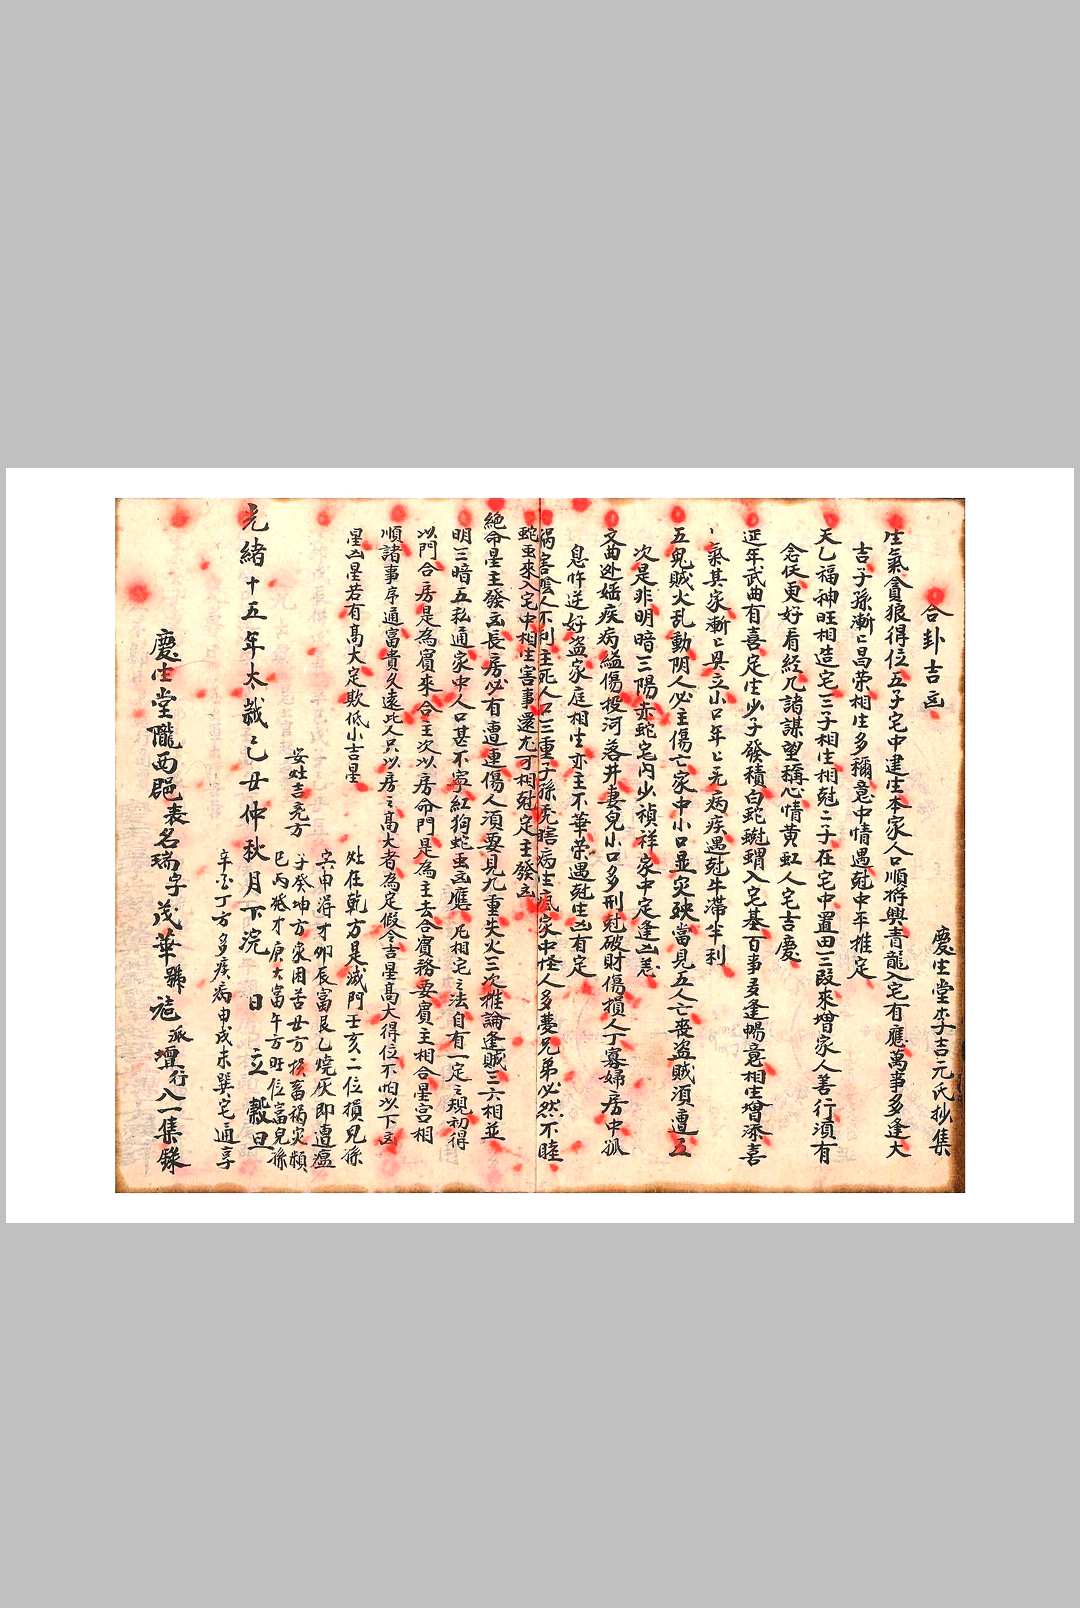 合卦吉凶 慶生堂李吉元氏抄集
生氣貪狼得位五子宅中建生本家人口順將興青龍入宅有應萬事多逢大
吉子孫漸〻昌荣相生多穪意中情遇尅中平推定
天乙福神旺相造宅三子相生相尅二子在宅中置田三段來增家人善行湏有
念佞更好看經凡諸謀望稱心情黄虹人宅吉慶
延年武曲有喜定生少子發積白蛇 入宅基百事多逢暢意相生增添喜
氣其家漸〻異立小口年〻无病疾遇尅牛滯半利
五鬼賊火乱動阴人必主傷亡家中小口並灾殃當見五人亡丧盗賊湏遭五
次是非明暗三陽赤蛇宅内少禎祥家中定逢凶恶
文曲处婬疾病縊傷投河落井妻兒小口多刑尅破財傷損人丁寡婦房中孤
息忤逆好盗家庭相生亦主不華荣遇尅生凶有定
禍害陰人不利主死人口三重子孫秃瞎病生瘋家中怪人多夢兄弟必然不睦
蛇虫來入宅中相生害事還尤可相尅定主發凶
絕命星主發凶長房必有遭連傷人湏要見九重失火三次推論逢賊三六相並
明三暗五私通家中人口甚不寧紅狗蛇虫凶應 凡相宅之法自有一定之現初得
以門合房是為賓來合主次以房命門是為主去合賓務要賓主相合星宫相
順諸事序通富貴久遠此人只以房之高大者為定假令吉星高大得位不怕以下凶
星凶星若有高大定欺低小吉星
安灶吉凶方
灶在乾方是滅門壬亥二位損兒孫
寅申得才卯辰富艮乙燒灰即遭瘟
子癸坤方家困苦丑方損畜禍灾頻
巳丙發才庚大富午方旺位富兒孫
辛酉丁方多疾病申戌未巽宅通享
光緒十五年太嵗己丑仲秋月下浣日立穀旦
慶生堂隴西邑表名瑞字茂華號 派壇行八一集錄